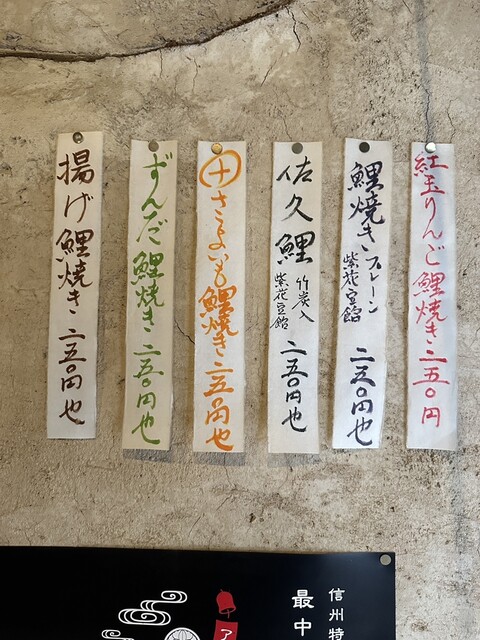 紅玉りんご鯉焼き 二五〇円
鯉焼き プレーン 紫花豆餡 二五〇円也
佐久鯉 竹炭入 紫花豆餡 二五〇円也
十 さつまいも鯉焼き 二五〇円也
ずんだ鯉焼き 二五〇円也
揚げ鯉焼き 二五〇円也
信州特
最中
ア